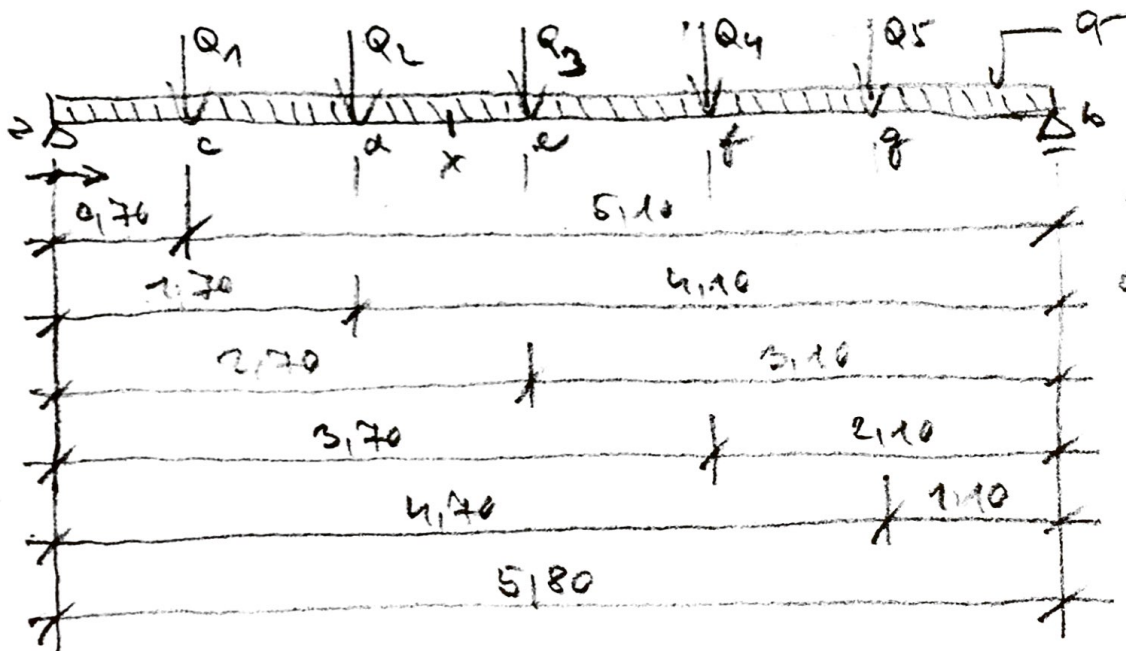 Q1 Q2 Q3 Q4 Q5 q
a c d x e f g b
0,70 5,10
1,70 4,10
2,70 3,10
3,70 2,10
4,70 1,10
5,80